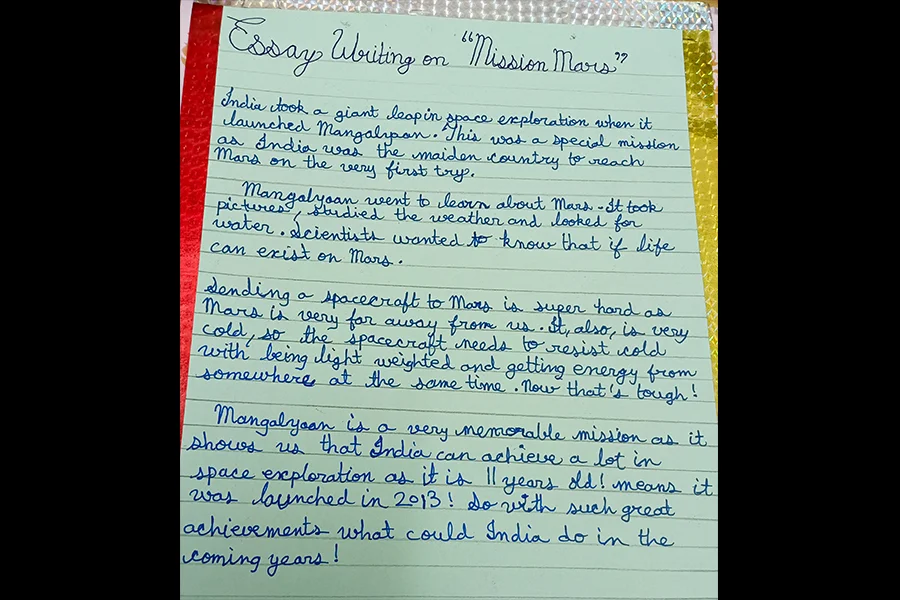 Essay Writing on "Mission Mars"
India took a giant leap in space exploration when it
launched Mangalyaan. This was a special mission
as India was the maiden country to reach
Mars on the very first try.
Mangalyaan went to learn about Mars. It took
pictures, studied the weather and looked for
water. Scientists wanted to know that if life
can exist on Mars.
Sending a spacecraft to Mars is super hard as
Mars is very far away from us. It, also, is very
cold, so the spacecraft needs to resist cold
with being light weighted and getting energy from
somewhere at the same time. Now that's tough!
Mangalyaan is a very memorable mission as it
shows us that India can achieve a lot in
space exploration as it is 11 years old! means it
was launched in 2013! So with such great
achievements what could India do in the
coming years!